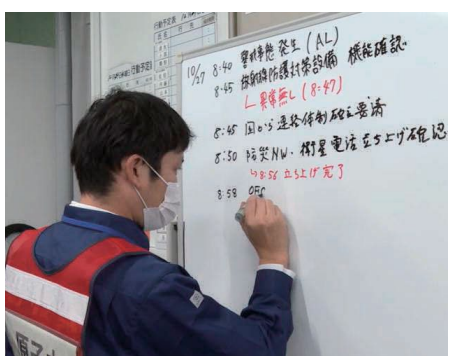 行動予定表
10/27 8:40 警戒事態発生(AL)
8:45 放射線防護対策設備 機能確認
└ 異常無し(8:47)
8:45 国から連絡体制確立要請
8:50 防災NW、衛星電話立ち上げ確認
↳ 8:56 立ち上げ完了
8:58 OFC
原子力